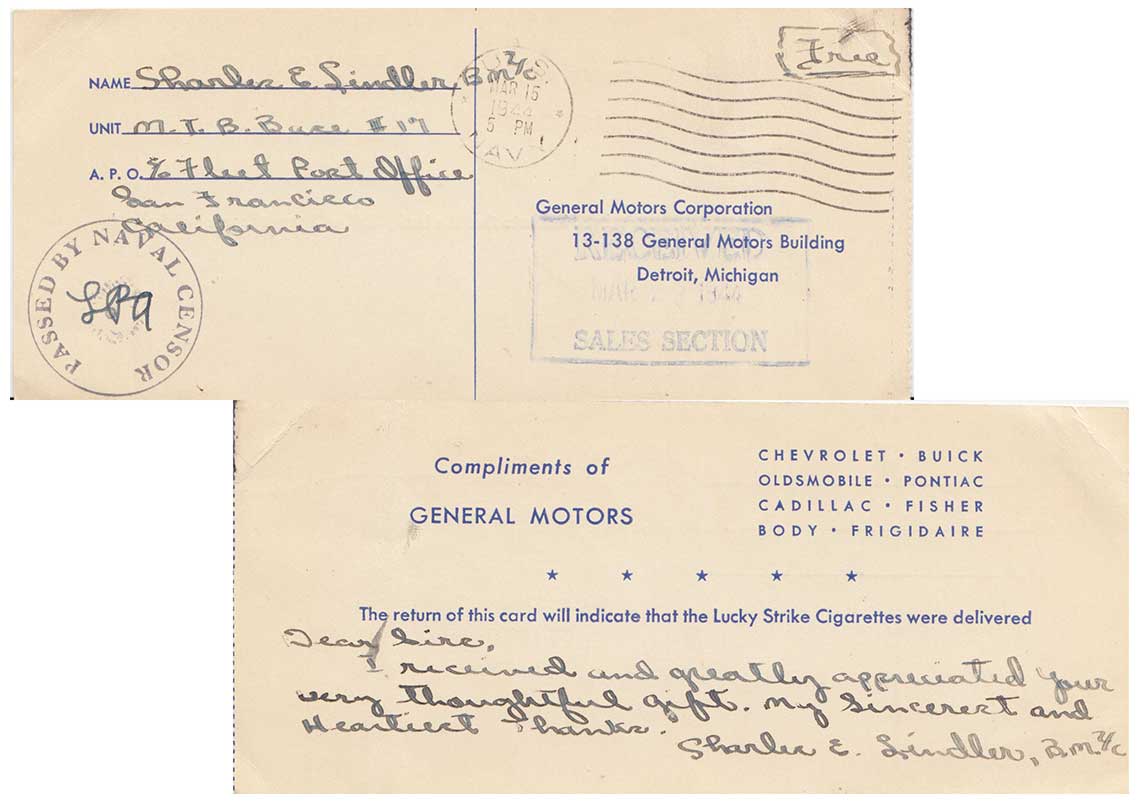 NAME Charles E. Lindler, B.M. 2/c
UNIT M.T.B. Base #17
A. P. O. c/o Fleet Post Office
San Francisco
California
PASSED BY NAVAL CENSOR
U.S. NAVY
MAR 15
1944
5 PM
Free
General Motors Corporation
13-138 General Motors Building
Detroit, Michigan
SALES SECTION
Compliments of
GENERAL MOTORS
CHEVROLET · BUICK
OLDSMOBILE · PONTIAC
CADILLAC · FISHER
BODY · FRIGIDAIRE
The return of this card will indicate that the Lucky Strike Cigarettes were delivered
Dear Sirs,
I received and greatly appreciated your
very thoughtful gift. My Sincerest and
Heartiest Thanks.
Charles E. Lindler, B.M. 2/c